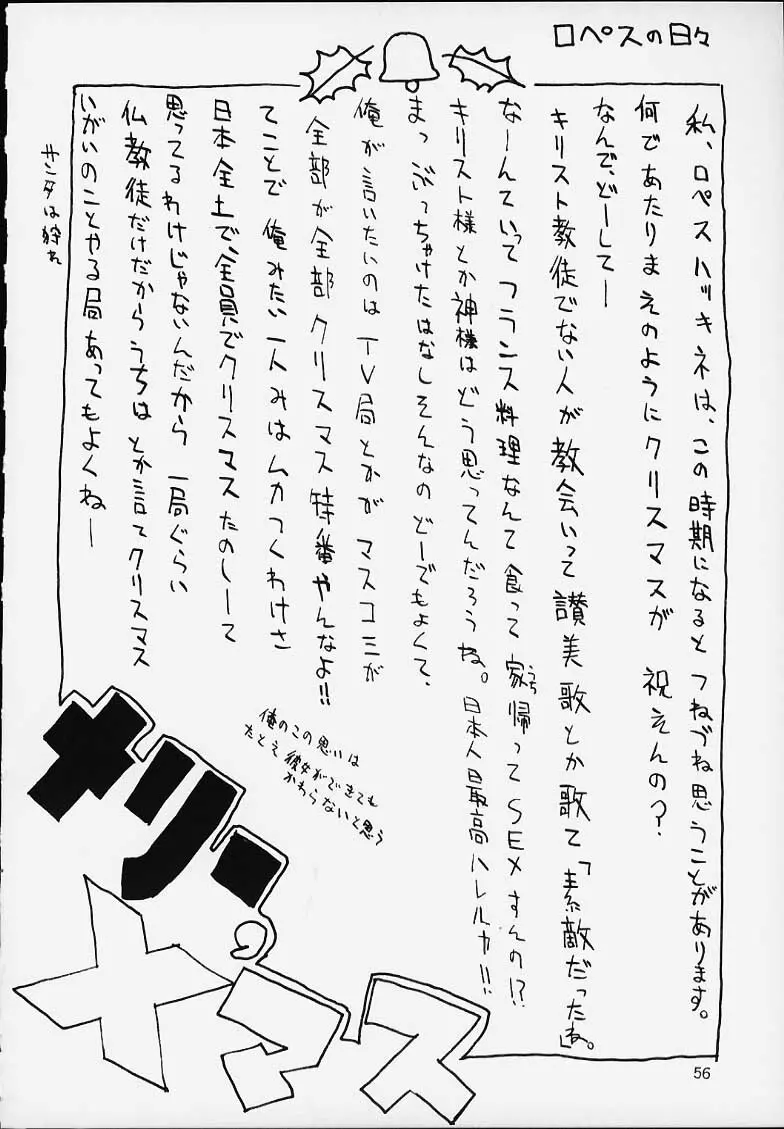 ロペスの日々
私、ロペスハッキネは、この時期になるとつねづね思うことがあります。
何であたりまえのようにクリスマスが祝えんの?
なんで、どーしてー
キリスト教徒でない人が教会いって讃美歌とか歌って「素敵だったね。」
なーんていってフランス料理なんて食って家帰ってSEXすんの!?
うち
キリスト様とか神様はどう思ってんだろうね。日本人最高ハレルヤ!!
まっ ぶっちゃけたはなしそんなのどーでもよくて、
俺が言いたいのはTV局とかがマスコミが
全部が全部クリスマス特番やんなよ!!
てことで俺みたい一人みはムカつくわけさ
日本全土で、全員でクリスマスたのしーて
思ってるわけじゃないんだから一局ぐらい
仏教徒だけだからうちはとか言てクリスマス
いがいのことやる局あってもよくねー
サンタは狩れ
俺のこの思いは
たとえ彼女ができても
かわらないと思う
メリー
Xマス
56